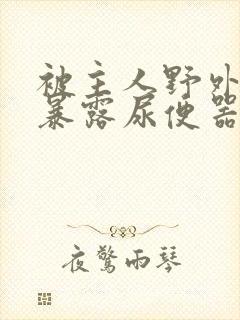 被主人野外
暴露尿便器
夜驚雨琴